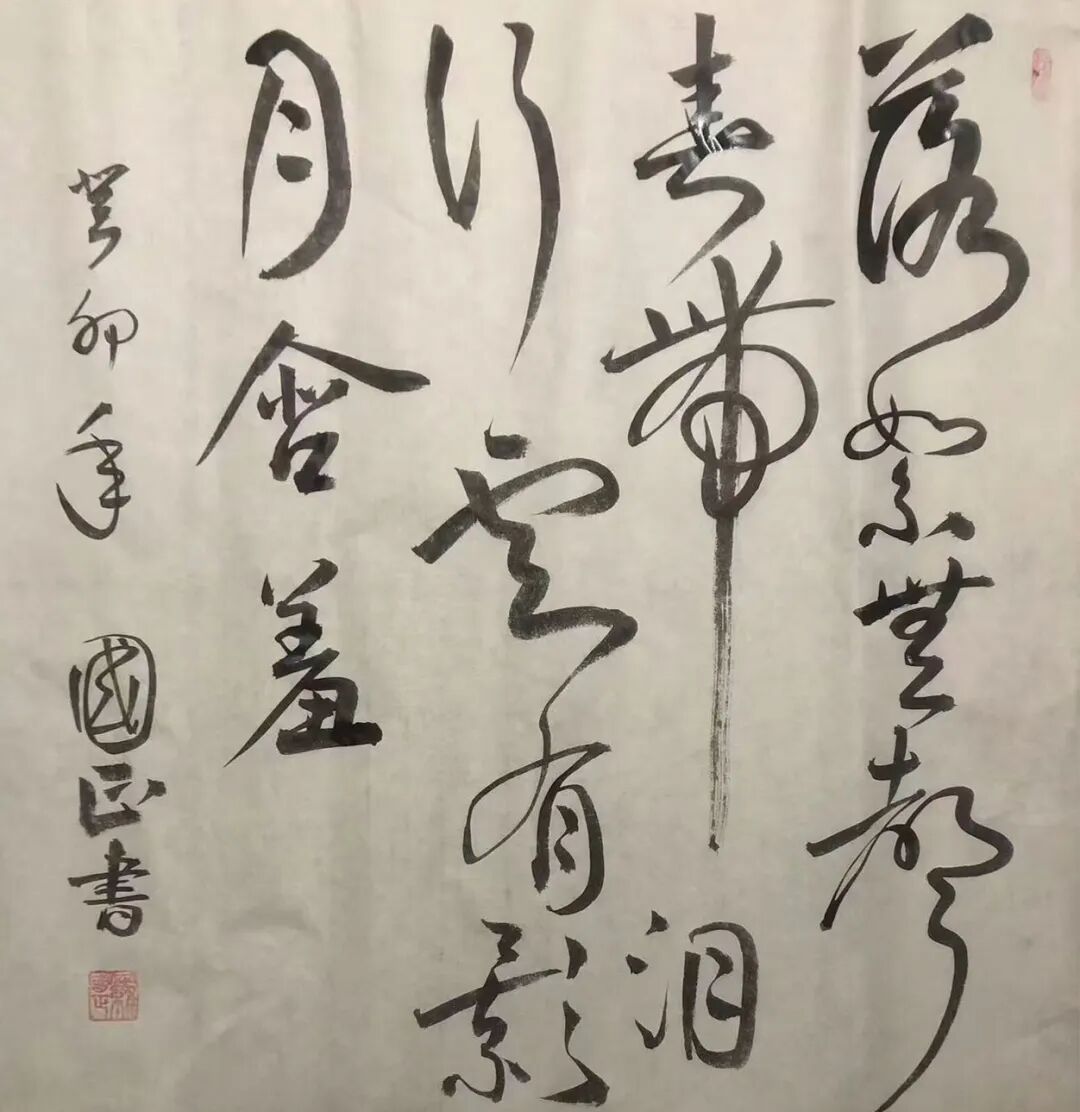 落絮無聲
春帶泪
行雲有影
月含羞
癸卯年 國正書